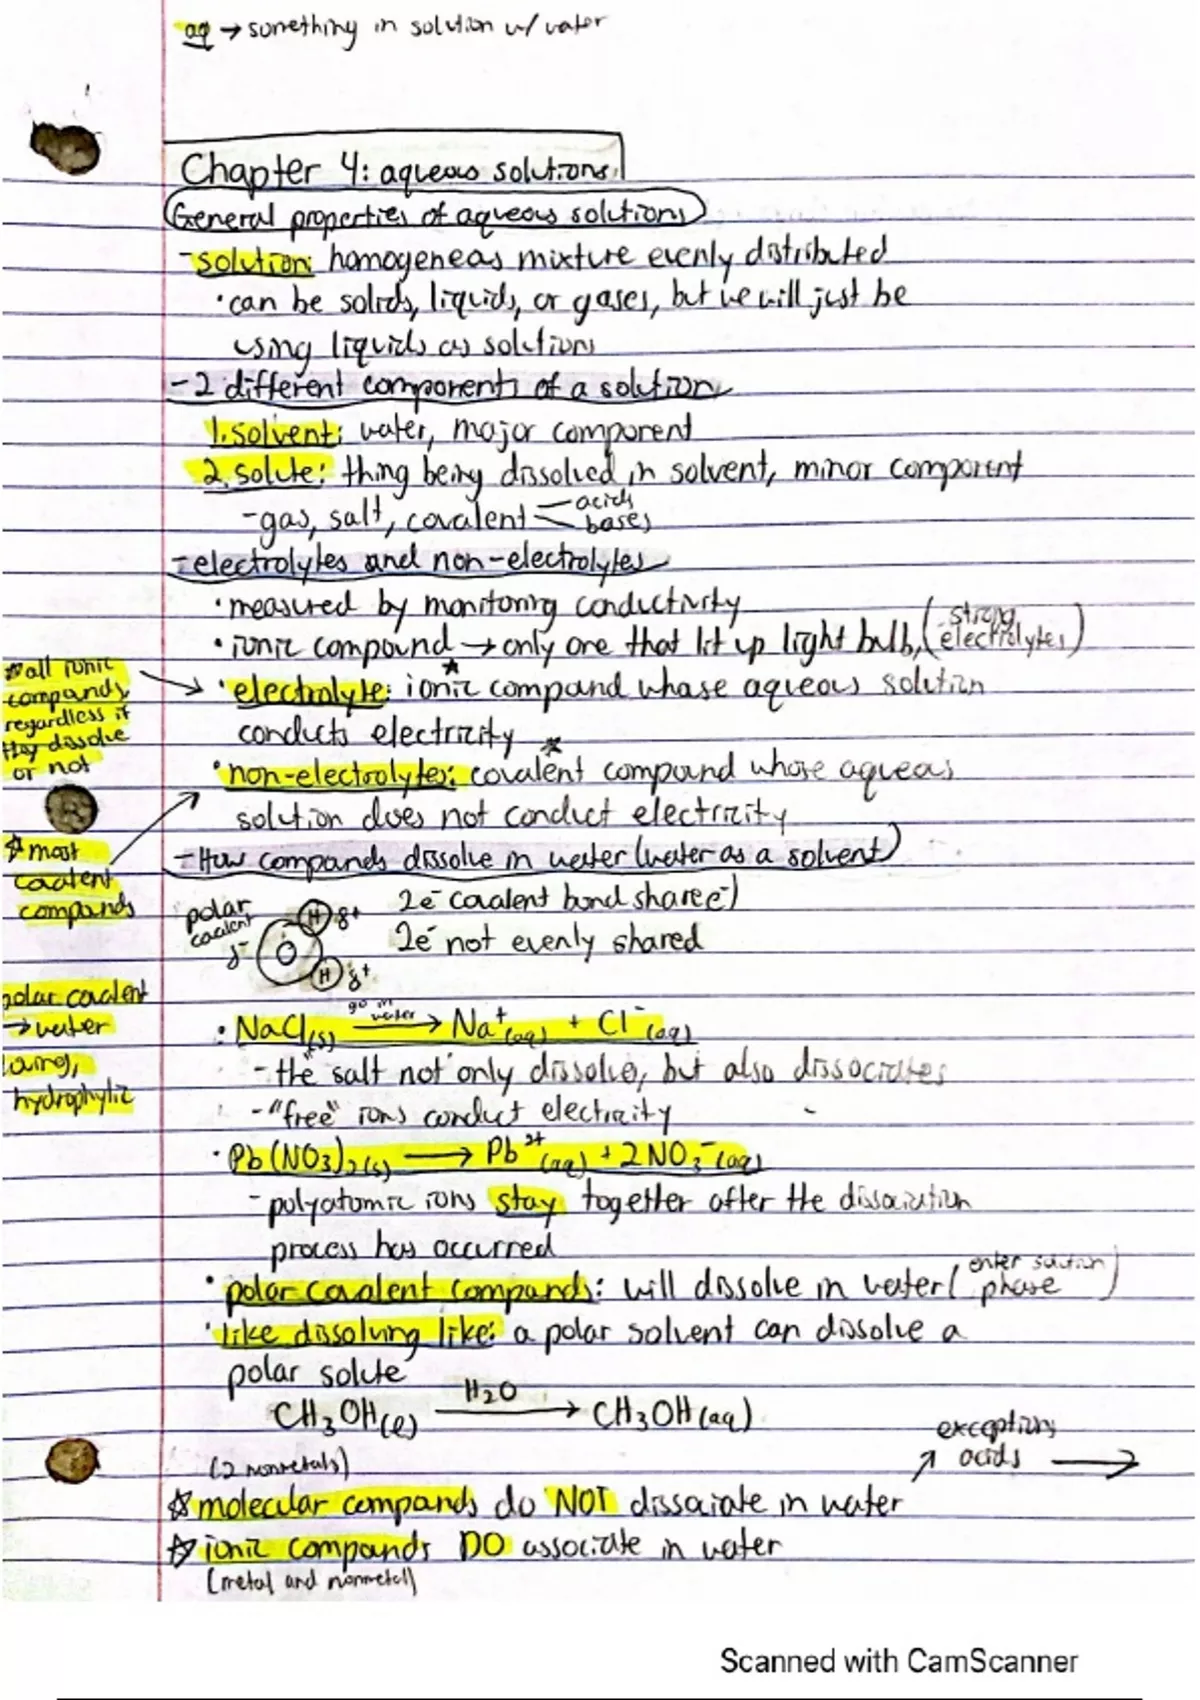 aq → something in solution w/ water
Chapter 4: aqueous solutions
General properties of aqueous solutions
- solution: homogeneas mixture evenly distributed
• can be solids, liquids, or gases, but we will just be
using liquids as solutions
- 2 different components of a solution
1. solvent: water, major component
2. solute: thing being dissolved in solvent, minor component
- gas, salt, covalent acids
bases
- electrolytes and non-electrolytes
• measured by monitoring conductivity
• ionic compound → only one that lit up light bulb, (strong
electrolytes)
☆ all ionic
compounds,
regardless if
they dissolve
or not
• electrolyte: ionic compound whose aqueous solution
conducts electricity
• non-electrolytes: covalent compound whose aqueous
solution does not conduct electricity
☆ most
covalent
compounds
- How compounds dissolve in water (water as a solvent)
polar
covalent
δ- O H δ+
H δ+
2e⁻ covalent bond share e⁻)
2e⁻ not evenly shared
polar covalent
→ water
hydrophylic
• NaCl(s) go in water → Na⁺(aq) + Cl⁻(aq)
- the salt not only dissolves, but also dissociates
- "free" ions conduct electricity
• Pb(NO3)2(s) → Pb²⁺(aq) + 2NO3⁻(aq)
- polyatomic ions stay together after the dissociation
process has occurred
• polar covalent compounds: will dissolve in water (enter solution
phase)
• like dissolving like: a polar solvent can dissolve a
polar solute
CH3OH(l) H2O → CH3OH(aq)
exceptions
↗ acids →
(2 nonmetals)
☆ molecular compounds do NOT dissociate in water
☆ ionic compounds DO associate in water
(metal and nonmetal)
Scanned with CamScanner